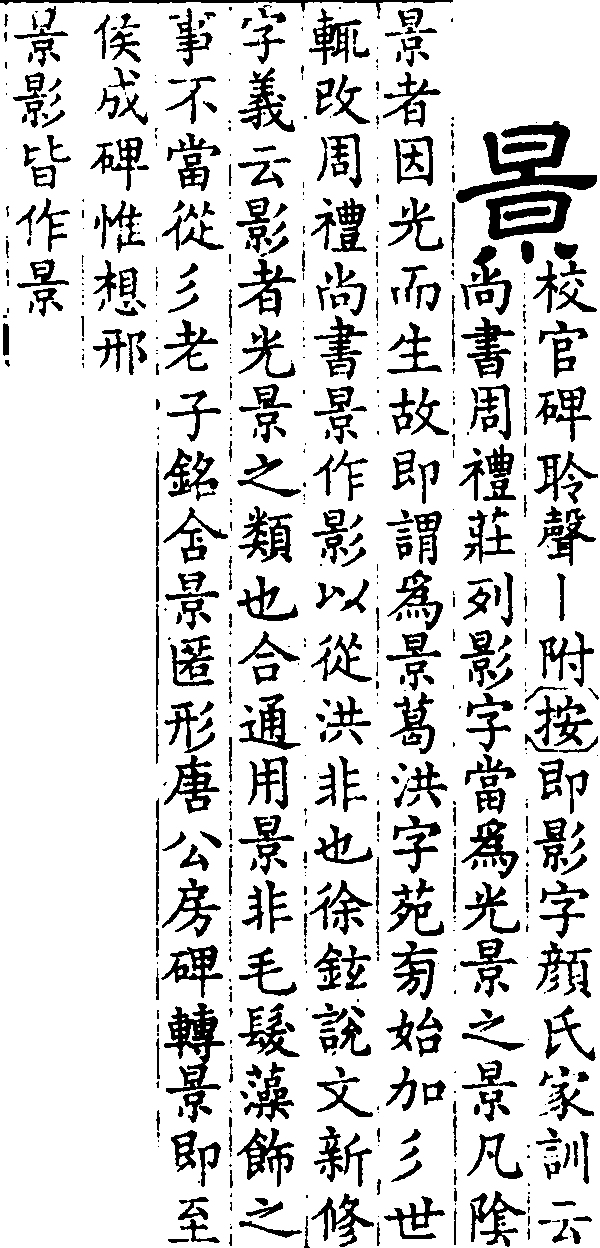 景
校官碑聆聲丨附按即影字顏氏家訓云
尚書周禮莊列影字當爲光景之景凡陰
景者因光而生故即謂爲景葛洪字苑㫄始加彡世
輒改周禮尚書景作影以從洪非也徐鉉說文新修
字義云影者光景之類也合通用景非毛髮藻飾之
事不當從彡老子銘含景匿形唐公房碑轉景即至
侯成碑惟想邢
景影皆作景